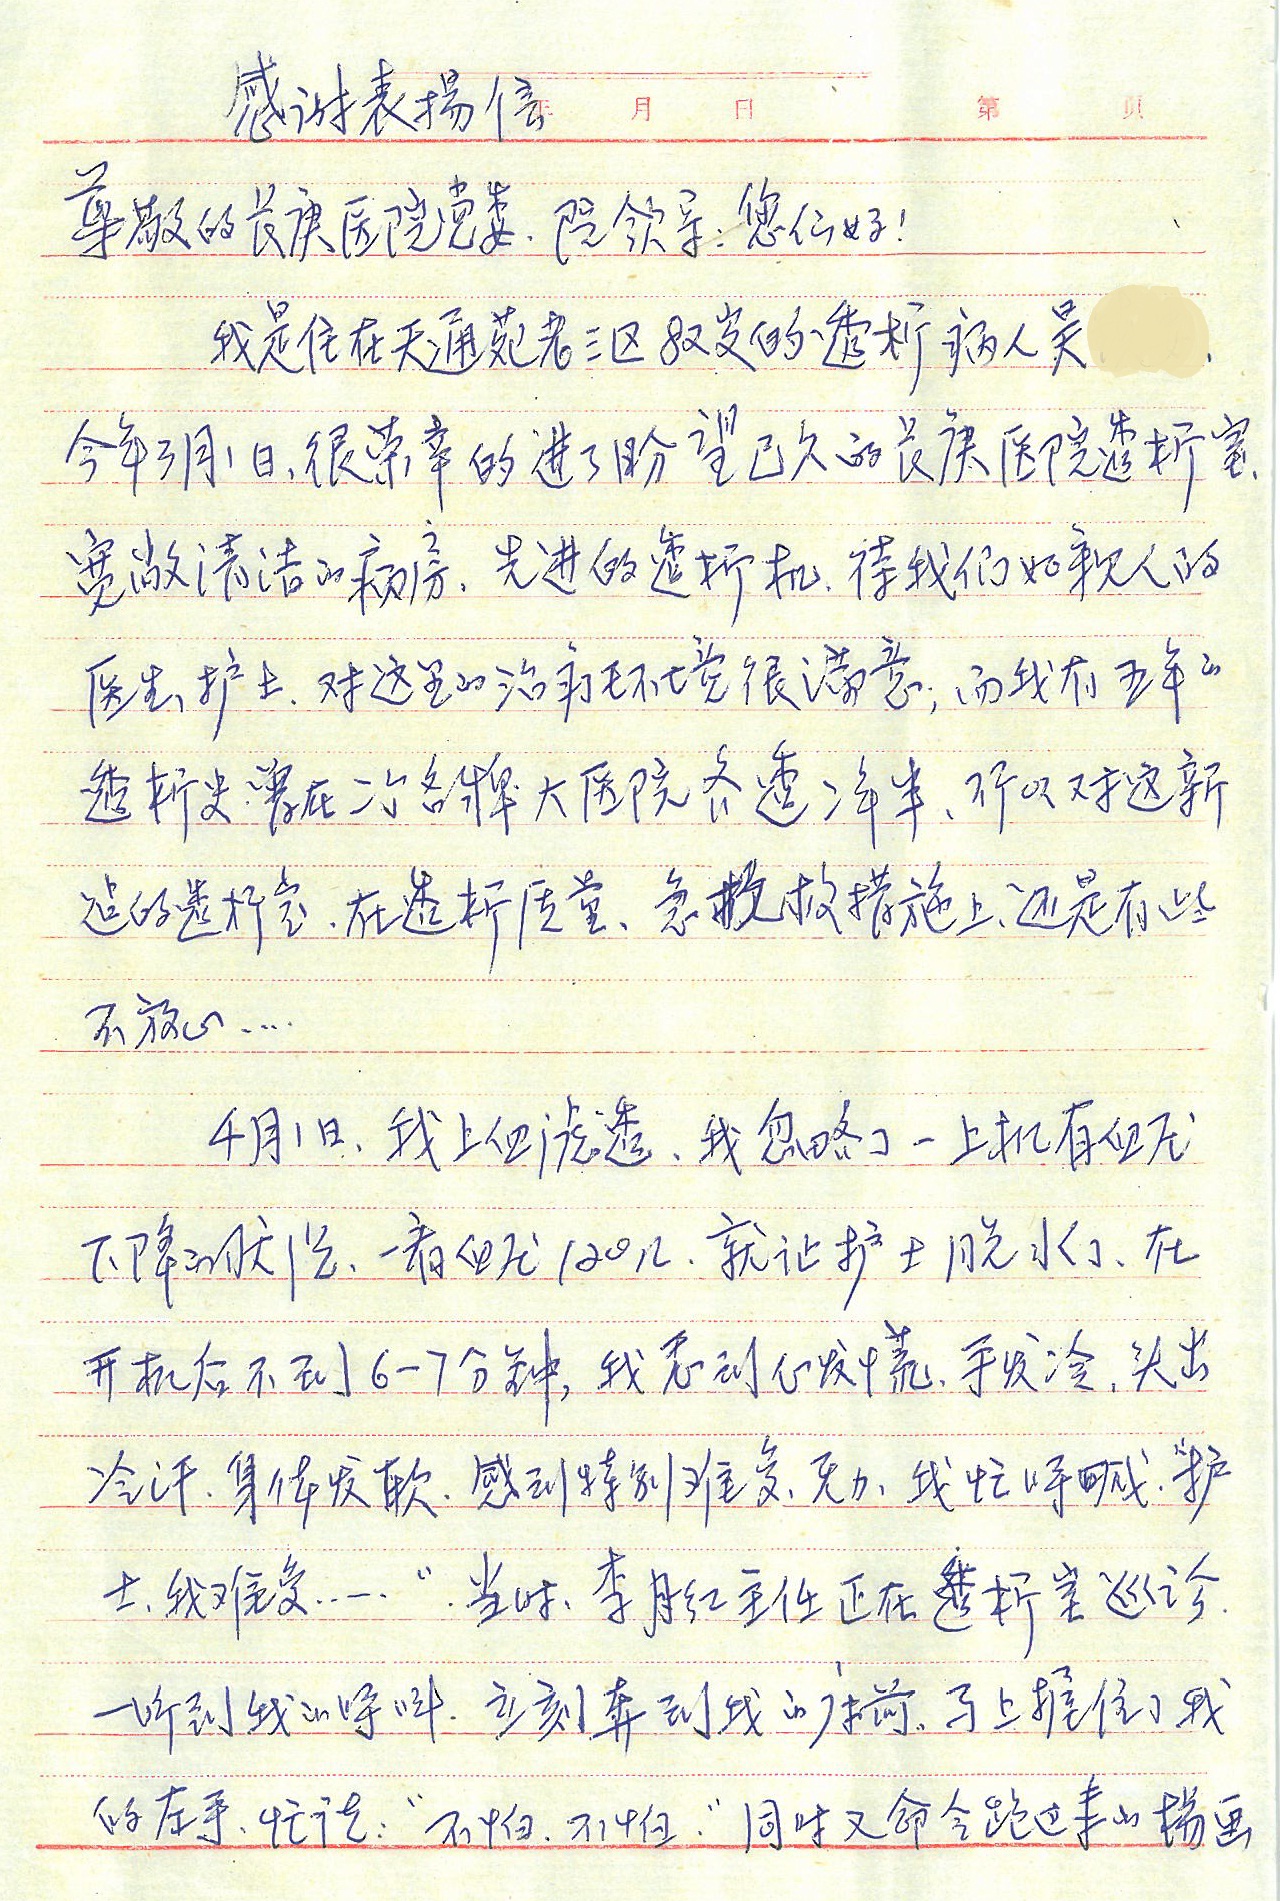 感谢表扬信
年 月 日 第 页
尊敬的长庚医院党委、院领导：您们好！
我是住在天通苑老三区82岁的透析病人吴
今年3月1日、很荣幸的进了盼望已久的长庚医院透析室、
宽敞清洁的病房、先进的透析机、待我们如亲人的
医生、护士、对这里的治疗环境很满意；而我有五年的
透析史、曾在二个名牌大医院各透2年半、所以对这新
建的透析室、在透析质量、急救措施上、还是有些
不放心….
4月1日、我上血滤透、我忽略了一上机有血压
下降的状况、一看血压120几、就让护士脱水了、在
开机后不到6-7分钟，我感到心发慌、手发冷、头出
冷汗、身体发软、感到特别难受、无力、我忙呼喊、“护
士、我难受……”当时、李月红主任正在透析室巡诊、
一听到我的呼叫、立刻奔到我的床前、马上握住了我
的左手、忙说：“不怕、不怕、”同时又命令跑过来的杨画